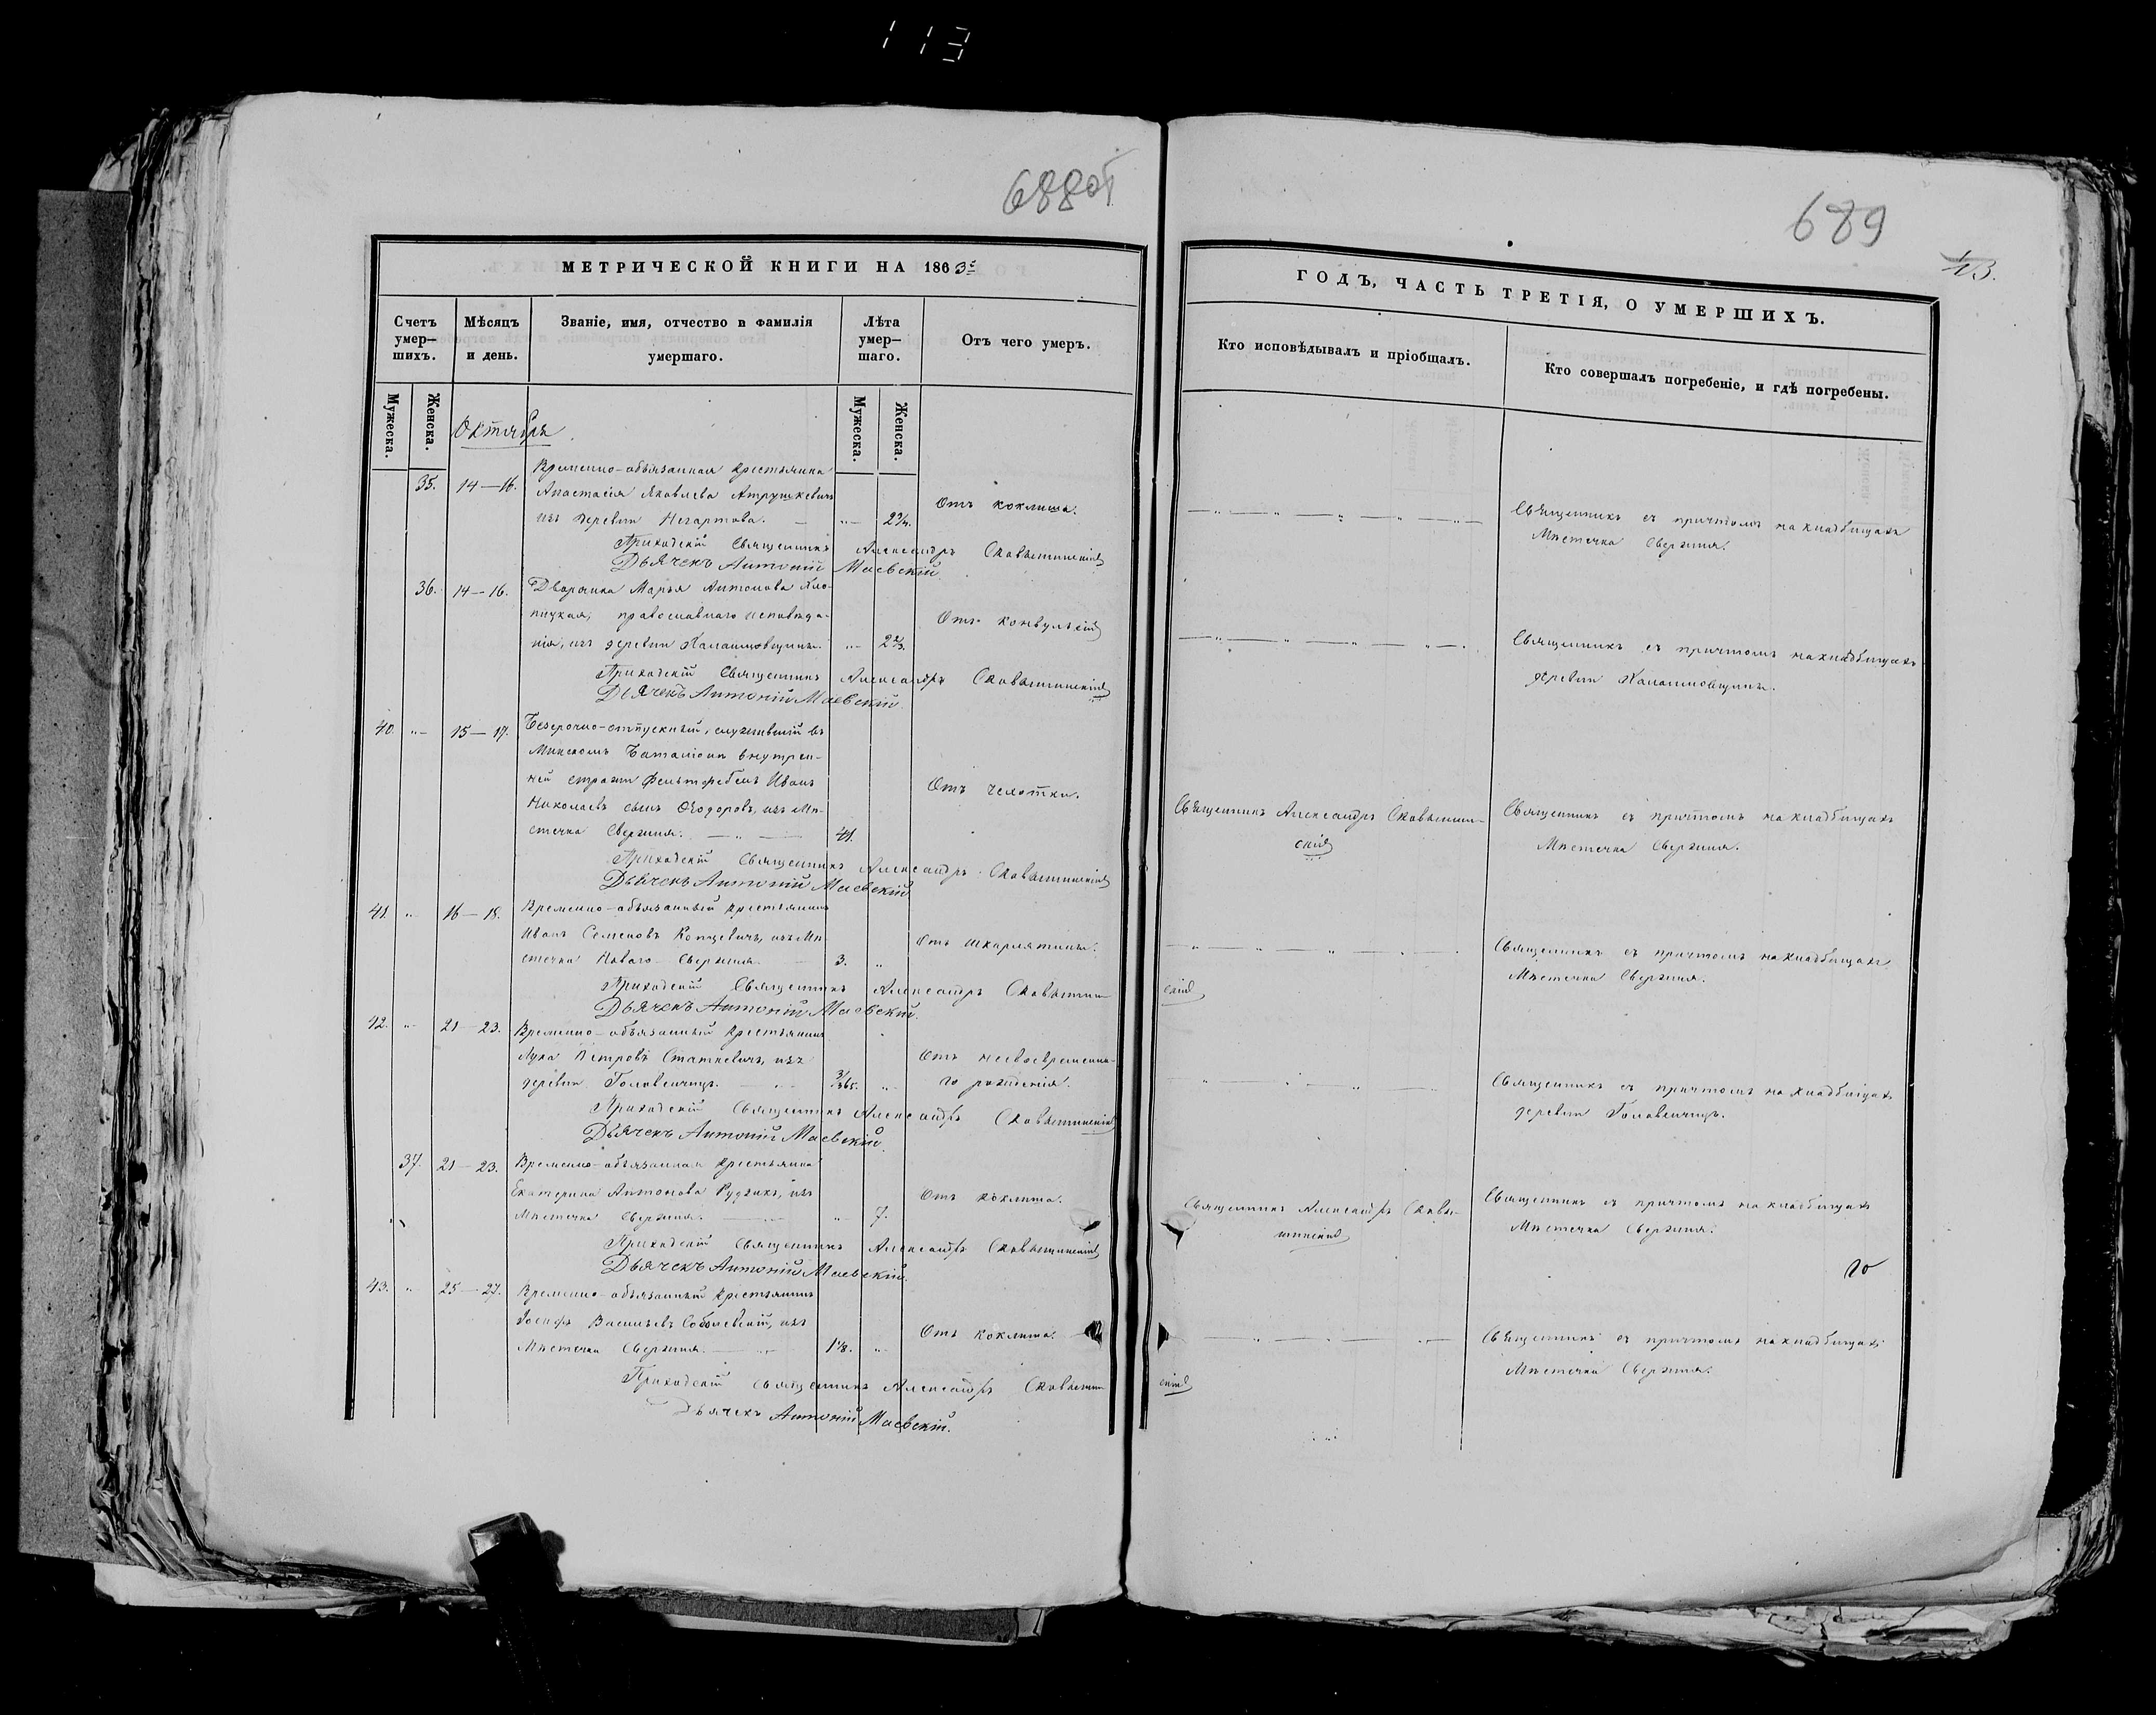 113
688об
689
13.
МЕТРИЧЕСКОЙ КНИГИ НА 1863й
ГОДЪ, ЧАСТЬ ТРЕТІЯ, О УМЕРШИХЪ.
Счетъ умер-шихъ.
Мѣсяцъ и день.
Званіе, имя, отчество и фамилія умершаго.
Лѣта умер-шаго.
Отъ чего умеръ.
Кто исповѣдывалъ и пріобщалъ.
Кто совершалъ погребеніе, и гдѣ погребены.
Мужеска.
Женска.
Мужеска.
Женска.
Октября
35. 14—16.
Временно-обязанная крестьянка
Анастасія Яковлева
изъ деревни
Отъ коклюша.
Священникъ съ причтомъ на кладбищахъ
Мѣстечка Свержня.
Приходскій Священникъ Александръ
Дьячекъ Антоній Маевскій
36. 14—16.
Дворянка Марья Антонова Хло-
пицкая, православнаго исповѣда-
нія, изъ деревни
2 2/3.
Отъ конвульсій
Священникъ съ причтомъ на кладбищахъ
деревни
Приходскій Священникъ Александръ
Дьячекъ Антоній Маевскій
40. „ 15—17.
Безсрочно-отпускный, служившій въ
Минскомъ Баталіонѣ внутрен-
ней стражи Фельдфебель Иванъ
Николаевъ сынъ Ѳеодоровъ, изъ Мѣ-
стечка Свержня.
41.
Отъ чахотки.
Священникъ Александръ
скій
Священникъ съ причтомъ на кладбищахъ
Мѣстечка Свержня.
Приходскій Священникъ Александръ
Дьячекъ Антоній Маевскій
41. „ 16—18.
Временно-обязанный крестьянинъ
Иванъ Семеновъ Копцевичъ, изъ Мѣ-
стечка Новаго Свержня
3. „
Отъ шкарлятины.
Священникъ съ причтомъ на кладбищахъ
Мѣстечка Свержня.
Приходскій Священникъ Александръ
скій
Дьячекъ Антоній Маевскій.
42. „ 21—23.
Временно-обязанный крестьянинъ
Лука Петровъ Статкевичъ, изъ
деревни
3/365. „
Отъ несвоевременна-
го рожденія.
Священникъ съ причтомъ на кладбищахъ
деревни
Приходскій Священникъ Александръ
Дьячекъ Антоній Маевскій.
37. 21—23.
Временно-обязанная крестьянка
Екатерина Антонова изъ
Мѣстечка Свержня.
„ 7.
Отъ коклюша.
Священникъ Александръ
Священникъ съ причтомъ на кладбищахъ
Мѣстечка Свержня.
Приходскій Священникъ Александръ
Дьячекъ Антоній Маевскій.
43. „ 25—27.
Временно-обязанный крестьянинъ
Іосифъ Васильевъ Соболевскій, изъ
Мѣстечка Свержня.
1 1/8. „
Отъ коклюша.
Священникъ съ причтомъ на кладбищахъ
Мѣстечка Свержня.
Приходскій Священникъ Александръ
скій
Дьячекъ Антоній Маевскій.